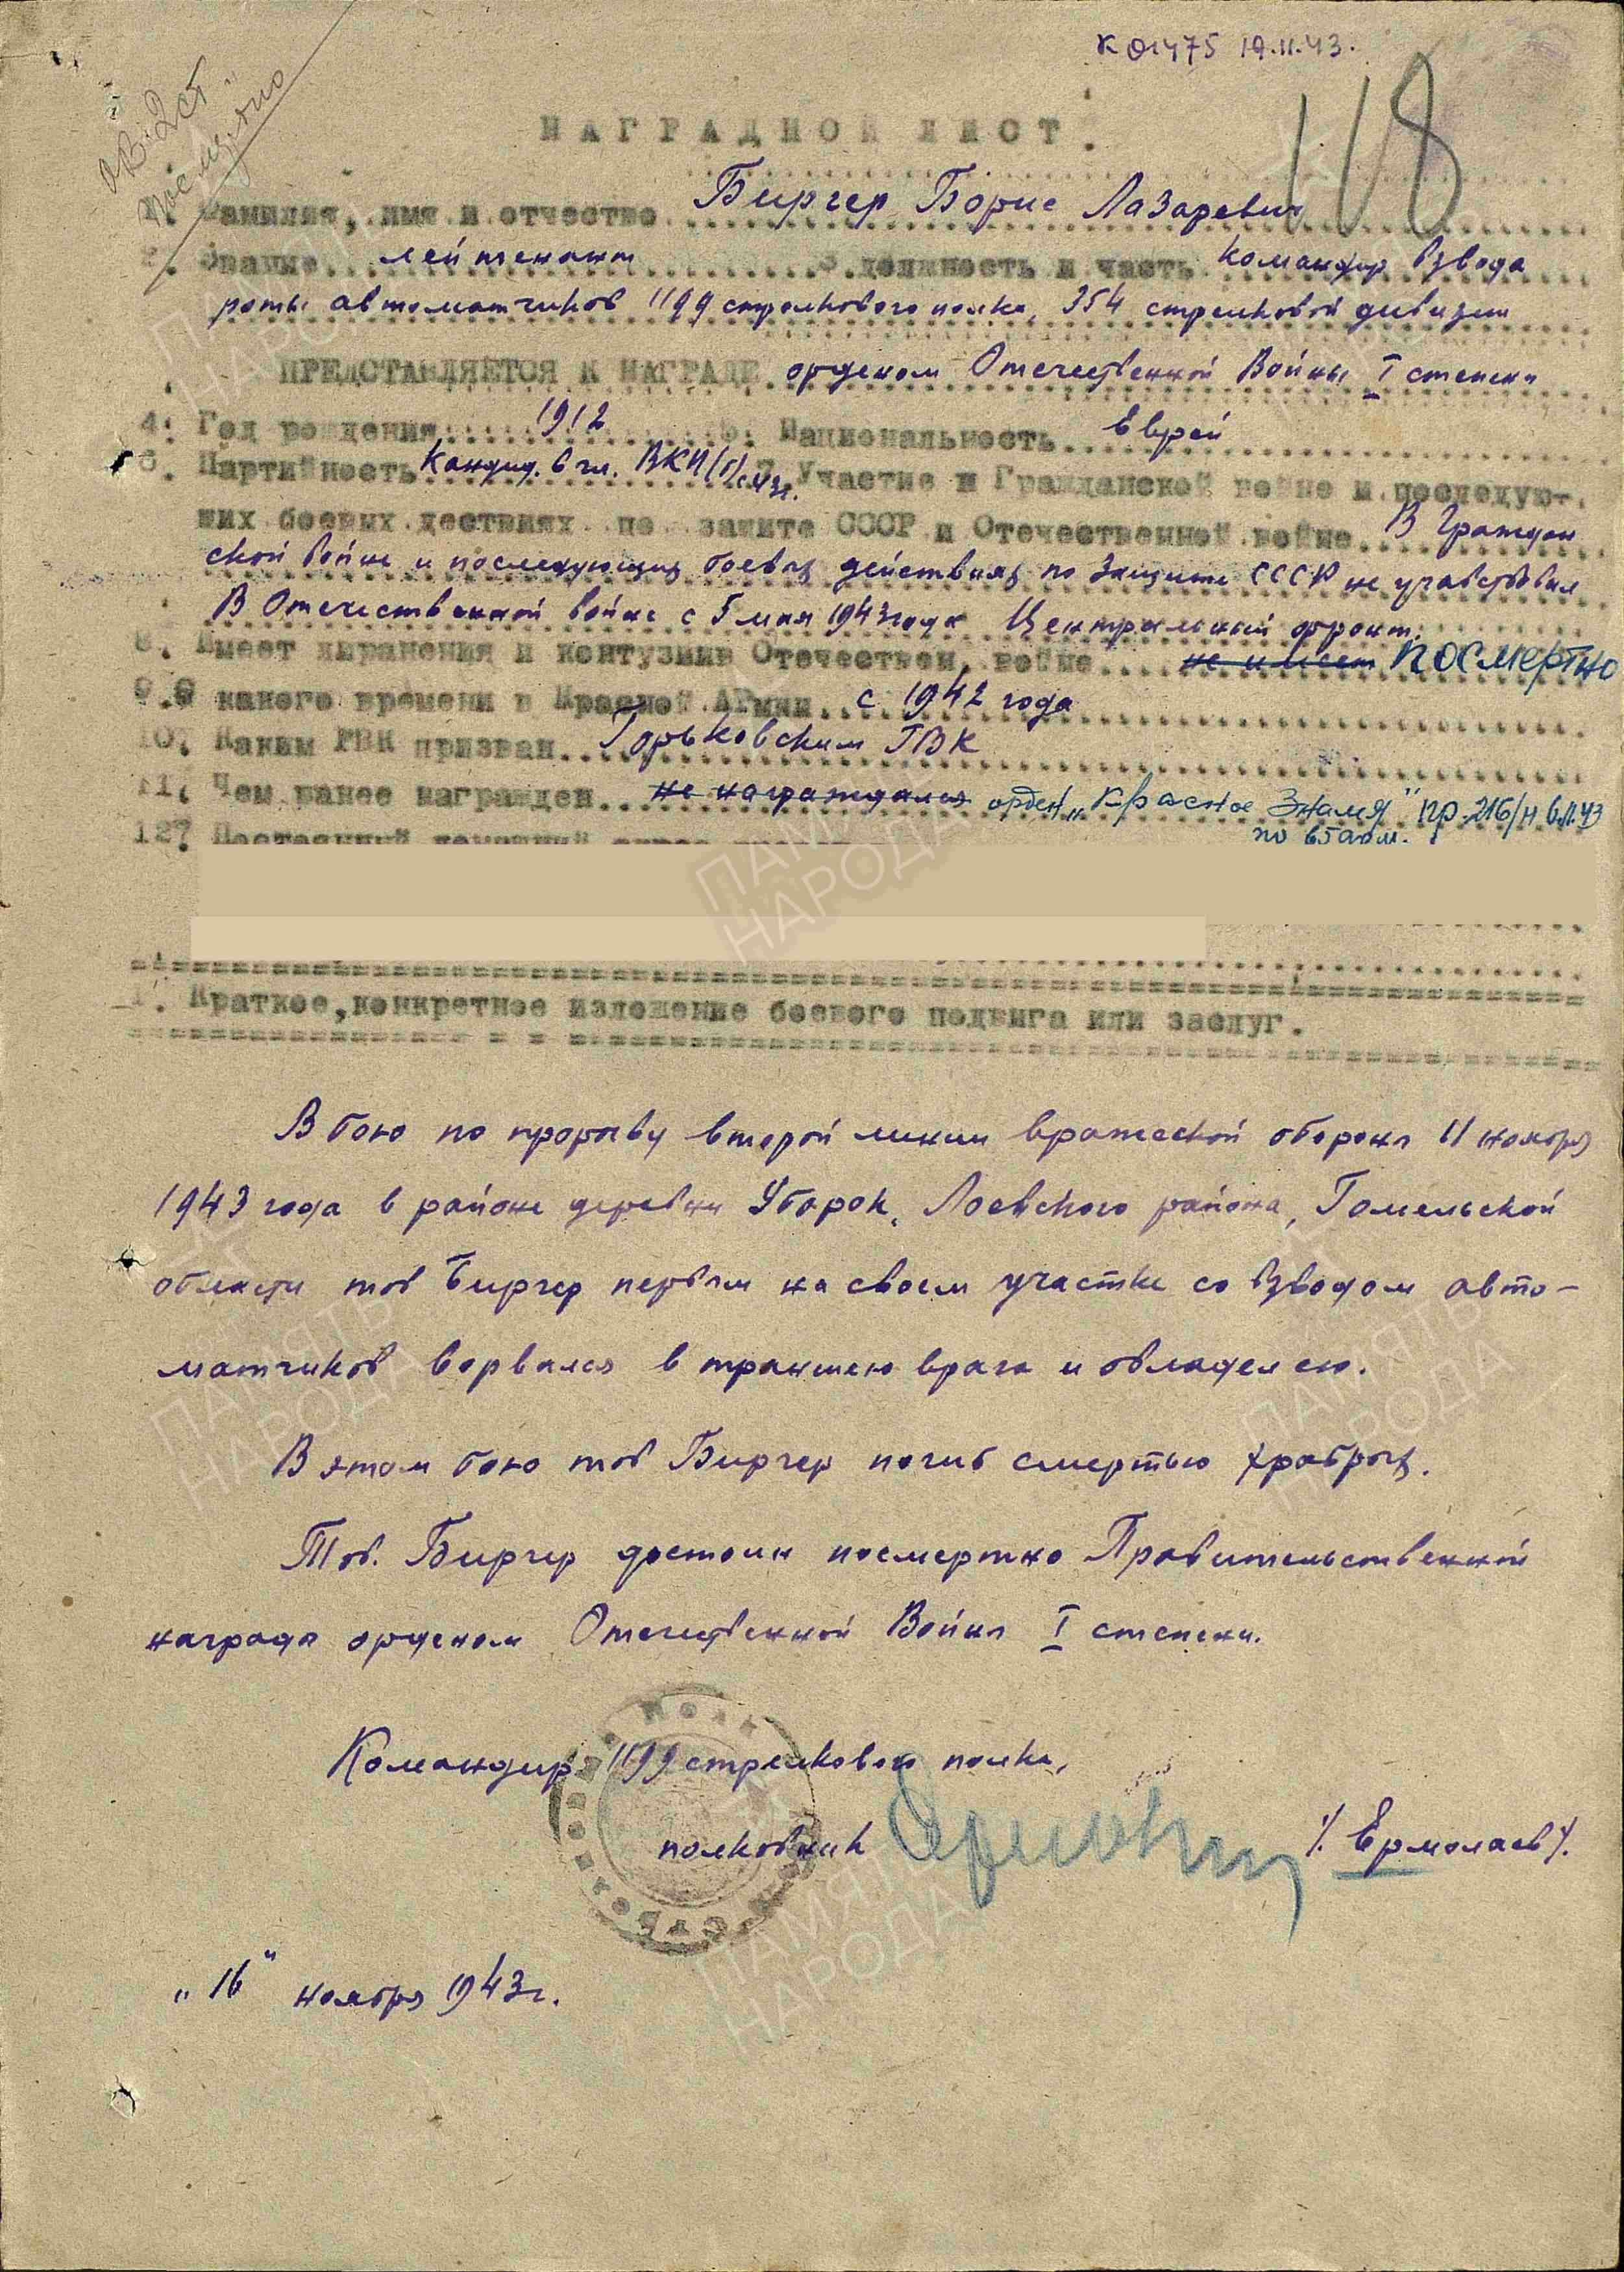 к 01475 19.11.43.
118
ОВ-2ст"
посмертно
НАГРАДНОЙ ЛИСТ.
1. Фамилия, имя и отчество Биргер Борис Лазаревич
2. Звание лейтенант 3. должность и часть Командир взвода
роты автоматчиков 1199 стрелкового полка, 354 стрелковой дивизии
ПРЕДСТАВЛЯЕТСЯ К НАГРАДЕ орденом Отечественной Войны I степени
4. Год рождения 1912 5. Национальность Еврей
6. Партийность Кандид. в чл. ВКП(б) с 43г. 7. Участие в Гражданской войне и последую-
щих боевых действиях по защите СССР и Отечественной войне В Граждан
ской войне и последующих боевых действиях по защите СССР не участвовал
В Отечественной войне с 5 мая 1943 года Центральный фронт.
8. Имеет ли ранения и контузии в Отечествен. войне не имеет посмертно
9. С какого времени в Красной Армии с 1942 года
10. Каким РВК призван Горьковским ГВК
11. Чем ранее награжден не награждался орден „Красное Знамя" пр. 216/н 6.11.43
по 65 арм.
12. Постоянный домашний адрес
1. Краткое, конкретное изложение боевого подвига или заслуг.
В бою по прорыву второй линии вражеской обороны 11 ноября
1943 года в районе деревни Уборок, Лоевского района, Гомельской
области тов Биргер первым на своем участке со взводом авто-
матчиков ворвался в траншею врага и овладел ею.
В этом бою тов Биргер погиб смертью храбрых.
Тов. Биргер достоин посмертно Правительственной
награда орденом Отечественной Войны I степени.
Командир 1199 стрелкового полка,
полковник /. Ермолаев /.
„16" ноября 1943г.
ПАМЯТЬ
НАРОДА